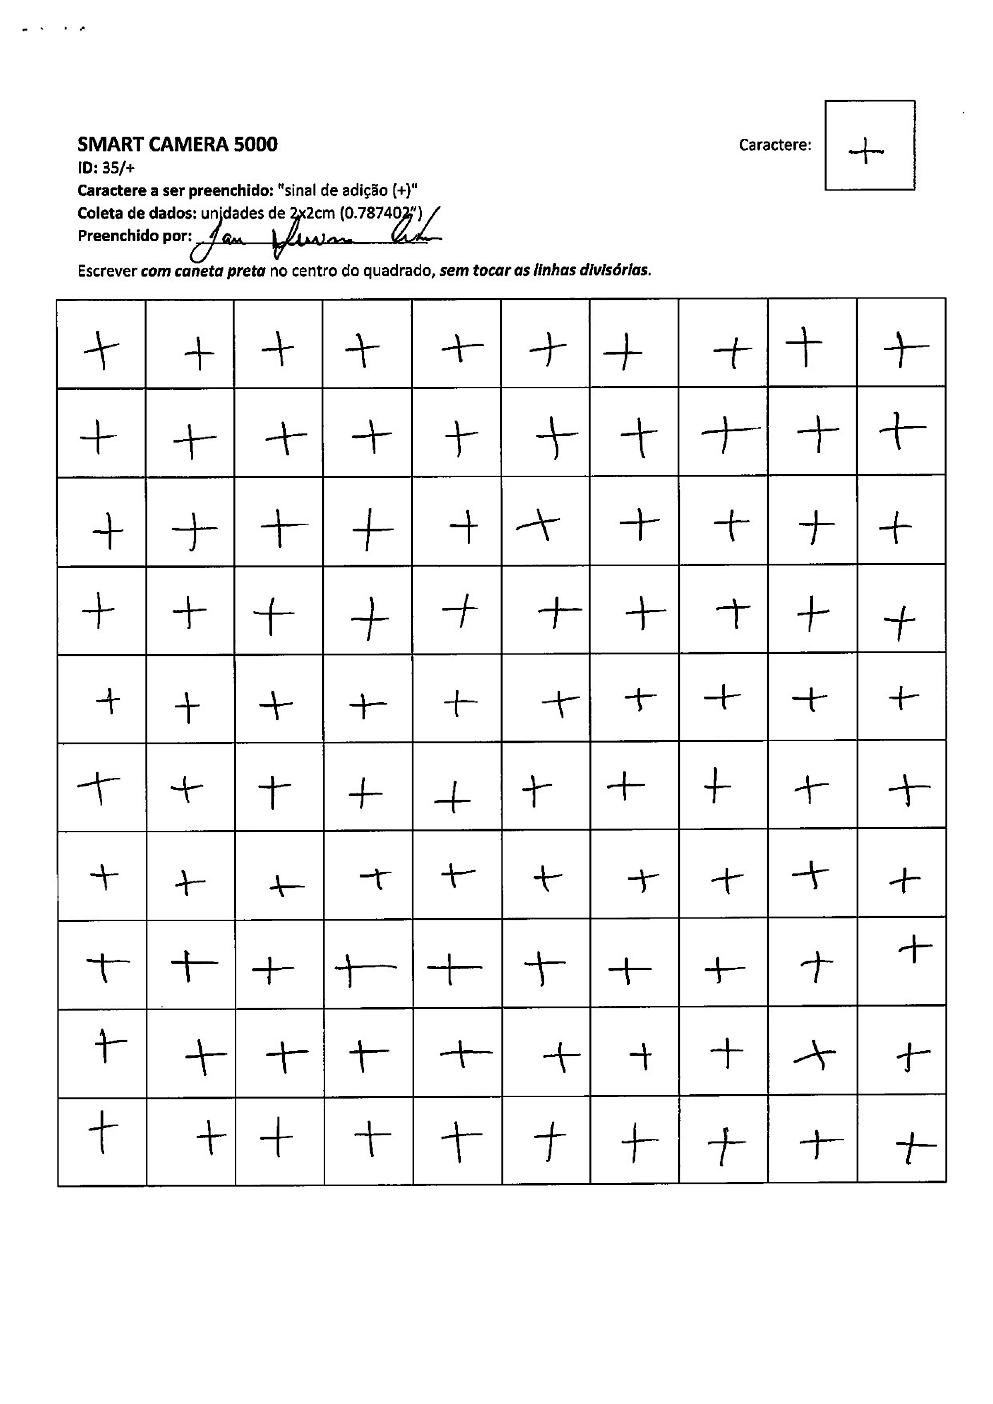 SMART CAMERA 5000
ID: 35/+
Caractere a ser preenchido: "sinal de adição (+)"
Coleta de dados: unidades de 2x2cm (0.787402")
Preenchido por:
Caractere: +
Escrever com caneta preta no centro do quadrado, sem tocar as linhas divisórias.
+ + + + + + + + + +
+ + + + + + + + + +
+ + + + + + + + + +
+ + + + + + + + + +
+ + + + + + + + + +
+ + + + + + + + + +
+ + + + + + + + + +
+ + + + + + + + + +
+ + + + + + + + + +
+ + + + + + + + + +